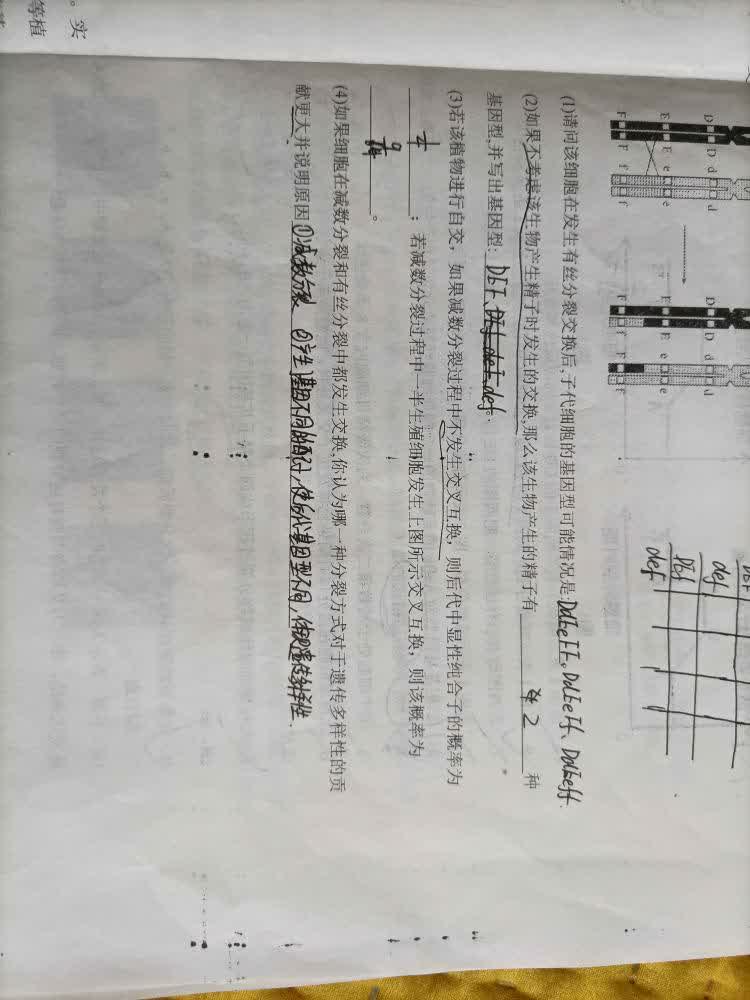 D D d d D D d d
E E e e E E e e
F F f f F F f f
DEF
def
DEf
def
(1)请问该细胞在发生有丝分裂交换后,子代细胞的基因型可能情况是:DdEeFF、DdEeFf、DdEeff.
(2)如果不考虑该生物产生精子时发生的交换,那么该生物产生的精子有 2 种
基因型,并写出基因型: DEF、def.
(3)若该植物进行自交，如果减数分裂过程中不发生交叉互换，则后代中显性纯合子的概率为
；若减数分裂过程中一半生殖细胞发生上图所示交叉互换，则该概率为
。
(4)如果细胞在减数分裂和有丝分裂中都发生交换,你认为哪一种分裂方式对于遗传多样性的贡
献更大并说明原因①减数分裂 ②产生基因不同的配子,使后代基因型不同,体现遗传多样性.
。实
等植